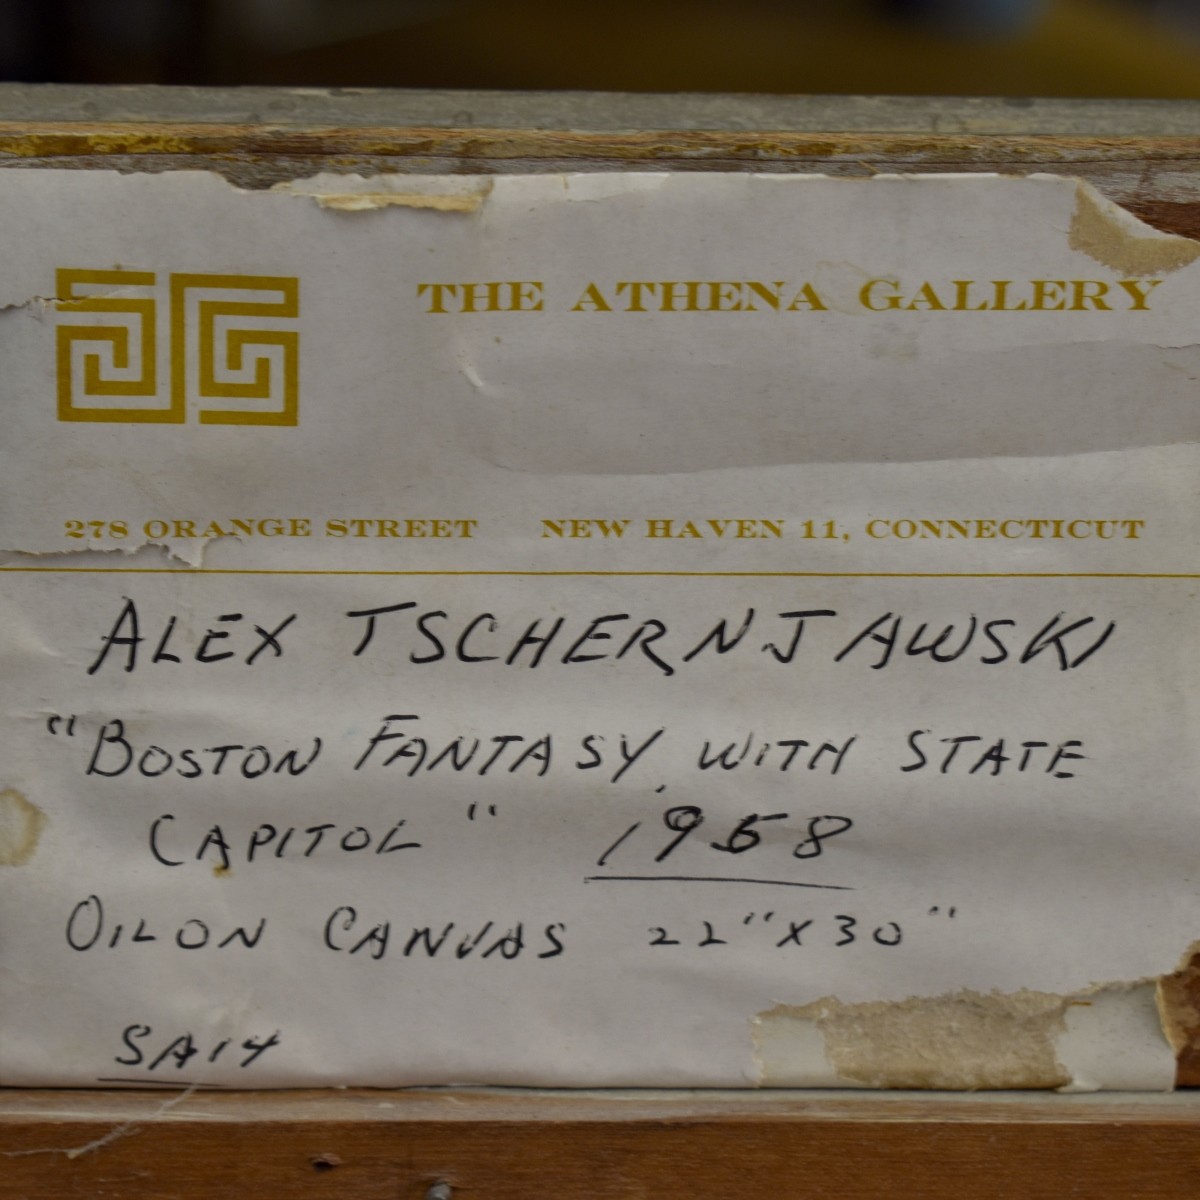 THE ATHENA GALLERY
278 ORANGE STREET NEW HAVEN 11, CONNECTICUT
ALEX TSCHERNJAWSKI
"BOSTON FANTASY, WITH STATE
CAPITOL" 1958
OIL ON CANVAS 22"X30"
SA14